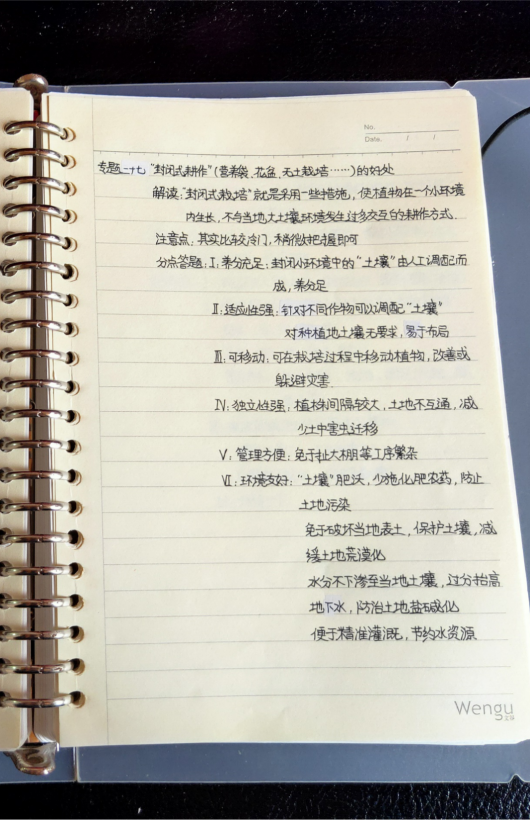 No.
Date. / /
专题二十七 "封闭式耕作"(营养袋、花盆、无土栽培……)的好处
解读:"封闭式栽培"就是采用一些措施,使植物在一个小环境
内生长,不与当地大土壤环境发生过多交互的耕作方式.
注意点:其实比较冷门,稍微把握即可
分点答题:I:养分充足:封闭小环境中的"土壤"由人工调配而
成,养分足
II:适应性强:针对不同作物可以调配"土壤"
对种植地土壤无要求,易于布局
III:可移动:可在栽培过程中移动植物,改善或
躲避灾害.
IV:独立性强:植株间隔较大,土地不互通,减
少土中害虫迁移
V:管理方便:免于扯大棚等工序繁杂
VI:环境友好:"土壤"肥沃,少施化肥农药,防止
土地污染
免于破坏当地表土,保护土壤,减
缓土地荒漠化
水分不下渗至当地土壤,过分抬高
地下水,防治土地盐碱化
便于精准灌溉,节约水资源
Wengu